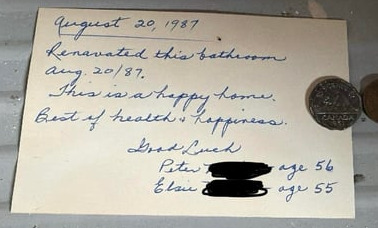 August 20, 1987
Renavated this bathroom
aug. 20/87.
This is a happy home.
Best of health & happiness.
Good Luck
Peter age 56
Elsie age 55
CANADA